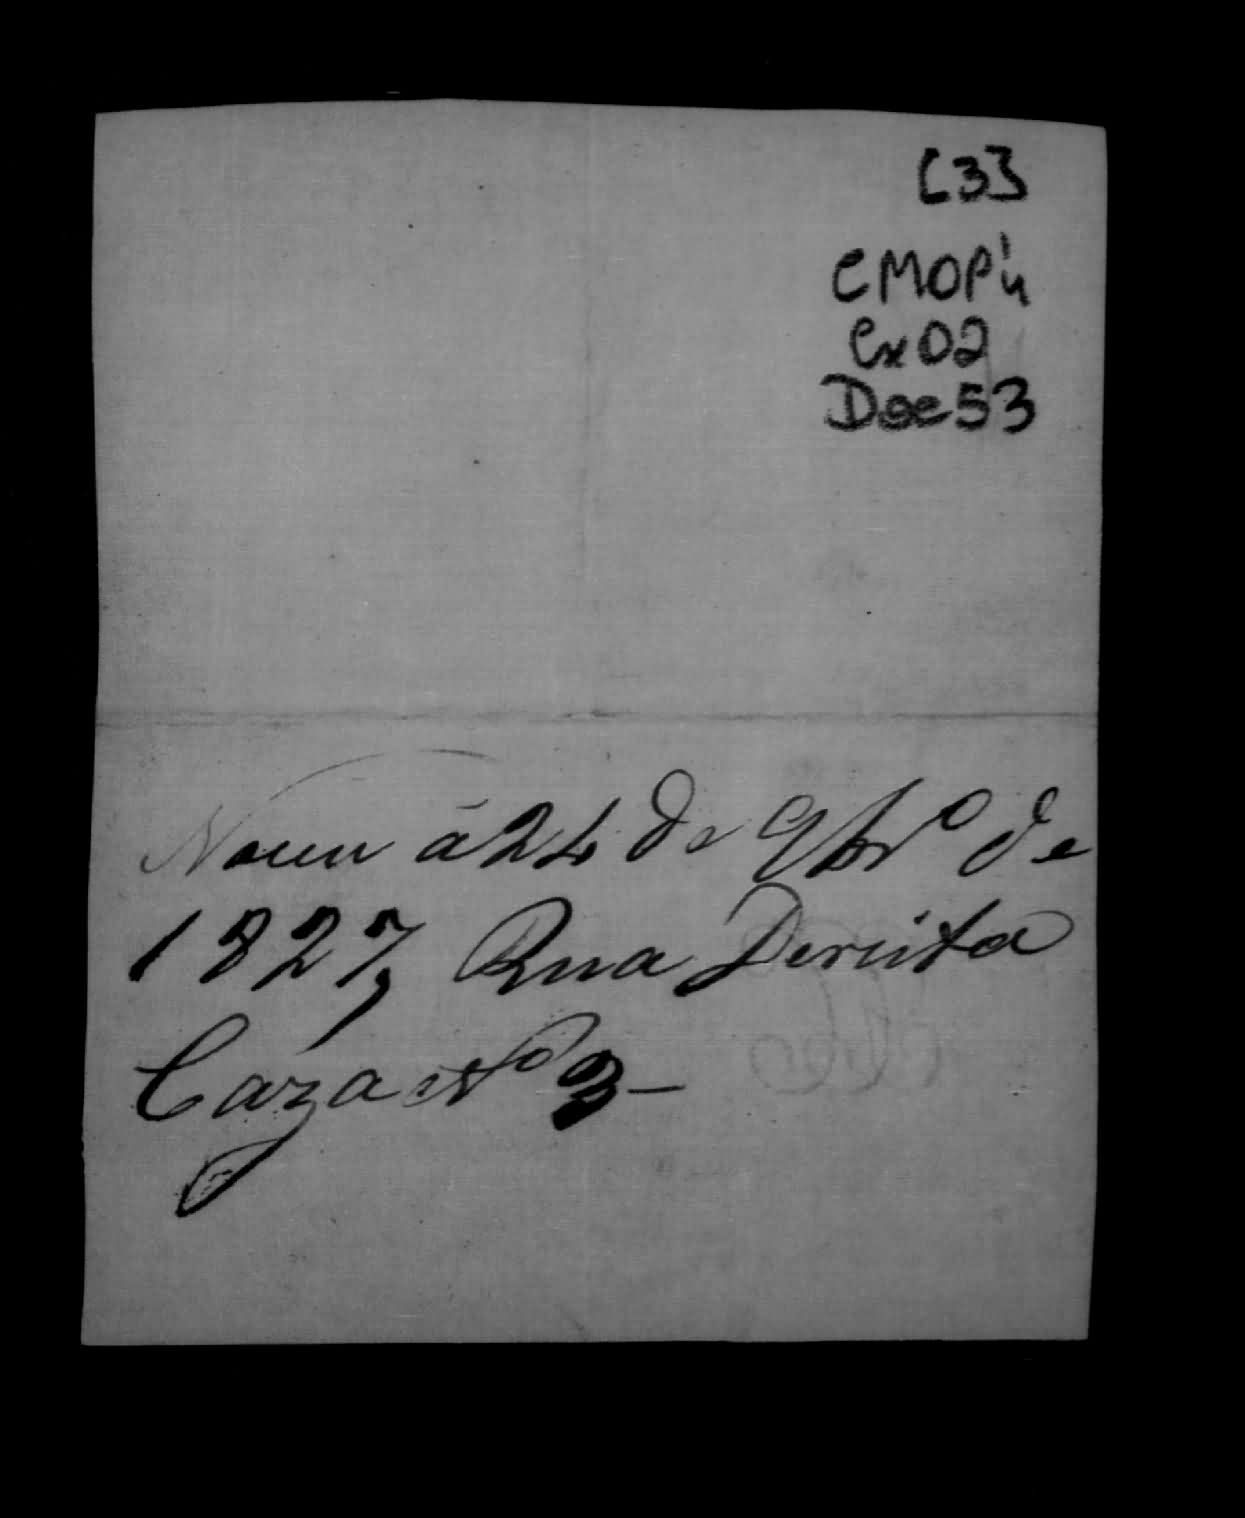 [3]
CMOP
Cx 02
Doc 53
Naceu a 24 de 9br.o de
1827, Rua Dereita
Caza N.o 3 –